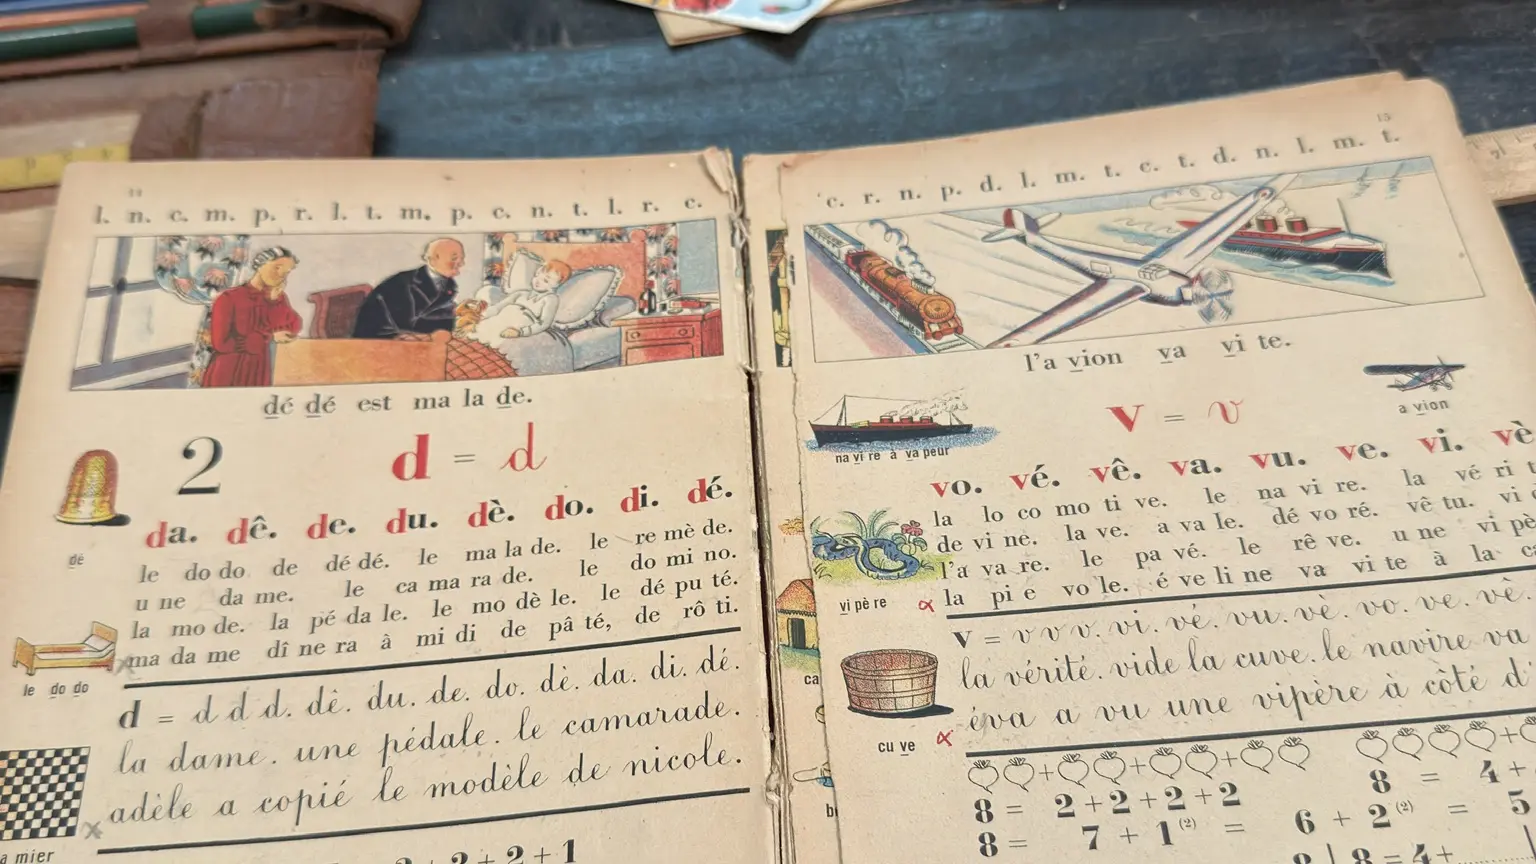 14
l. n. c. m. p. r. l. t. m. p. c. n. t. l. r. c.
dé dé est ma la de.
2 d = d
da. dê. de. du. dè. do. di. dé.
dé
le do do de dé dé. le ma la de. le re mè de.
u ne da me. le ca ma ra de. le do mi no.
la mo de. la pé da le. le mo dè le. le dé pu té.
ma da me dî ne ra à mi di de pâ té, de rô ti.
le do do
d = d d d. dè. du. de. do. dè. da. di. dé.
la dame. une pédale. le camarade.
adèle a copié le modèle de nicole.
a mier
2 + 2 + 1
15
c. r. n. p. d. l. m. t. c. t. d. n. l. m. t.
l'a vion va vi te.
na vi re à va peur
v = v
a vion
vo. vé. vê. va. vu. ve. vi. vè
la lo co mo ti ve. le na vi re. la vé ri t
de vi ne. la ve. a va le. dé vo ré. vê tu. vi
l'a va re. le pa vé. le rê ve. u ne vi pè
la pi e vo le. é ve li ne va vi te à la ca
vi pè re
v = v v v. vi. vé. vu. vè. vo. ve. vê.
la vérité. vide la cuve. le navire va
éva a vu une vipère à côté d'
cu ve
ca
8 = 2 + 2 + 2 + 2
8 = 4 +
8 = 7 + 1 (2) =
6 + 2 (2) = 5
8 = 4 +